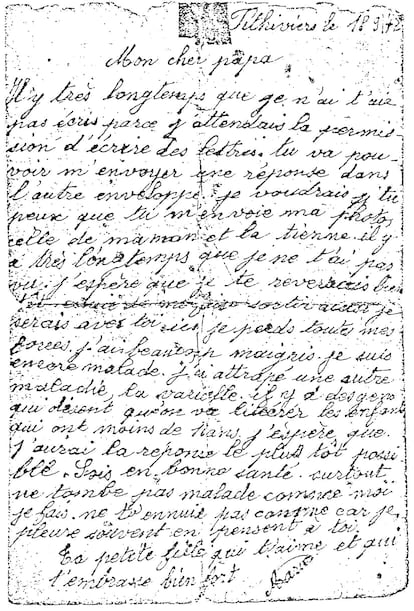 Pithiviers le 18 9/42
Mon cher papa
Il y très longtemps que je n'ai t'aie
pas écris parce j'attendais la permis-
sion d'écrire des lettres. tu va pou-
voir m'envoyer une réponse dans
l'autre enveloppe. je voudrais si tu
peux que tu m'envoie ma photo
celle de maman et la tienne il y
a très longtemps que je ne t'ai pas
vu. j'espère que je te reverrais bien
je
serais avec toi ici je perds toutes mes
forces, j'ai beaucoup maigris, je suis
encore malade. j'ai attrapé une autre
maladie, la varicelle. il y a des gens
qui disent qu'on va libérer les enfants
qui ont moins de ans, j'espère que
j'aurai la reponse le plus tôt possi
ble. Sois en bonne santé. surtout
ne tombe pas malade comme moi
je fais. ne te ennuie pas comme car je
pleure souvent en pensent à toi.
Ta petite fille qui t'aime et qui
t'embrasse bien fort